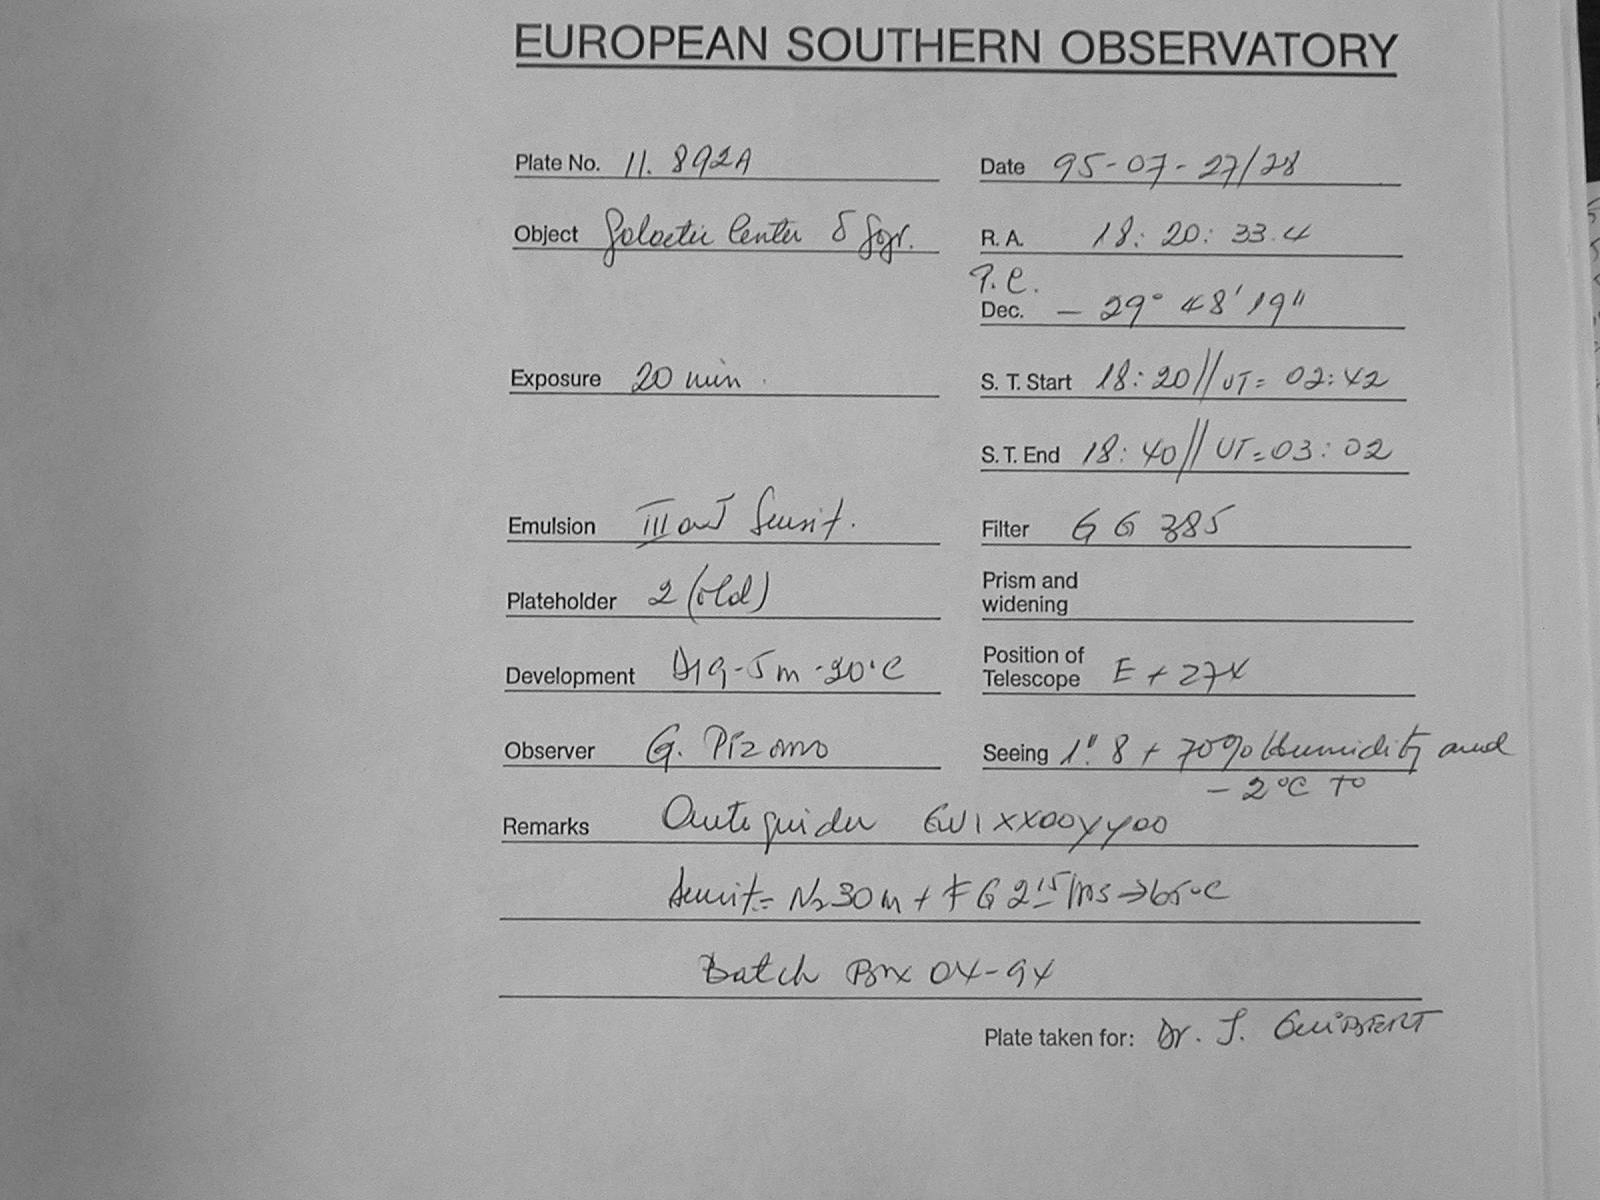 EUROPEAN SOUTHERN OBSERVATORY
Plate No. 11.892A Date 95-07-27/28
Object Galactic Center δ Sgr. R. A. 18: 20: 33.4
T.C.
Dec. - 29° 48' 19"
Exposure 20 min. S. T. Start 18:20//UT= 02:42
S. T. End 18:40//UT=03:02
Emulsion III a J Sensit. Filter GG 385
Plateholder 2 (old) Prism and
widening
Development D19-5m-20°C Position of
Telescope E + 274
Observer G. Pizarro Seeing 1".8 + 70% Humidity and
- 2°C T°
Remarks Autoguider GW1XX00YY00
Sensit= N2 30m + FG 2 15 hrs → 65°C
Batch Box 04-94
Plate taken for: Dr. J. GUIBERT